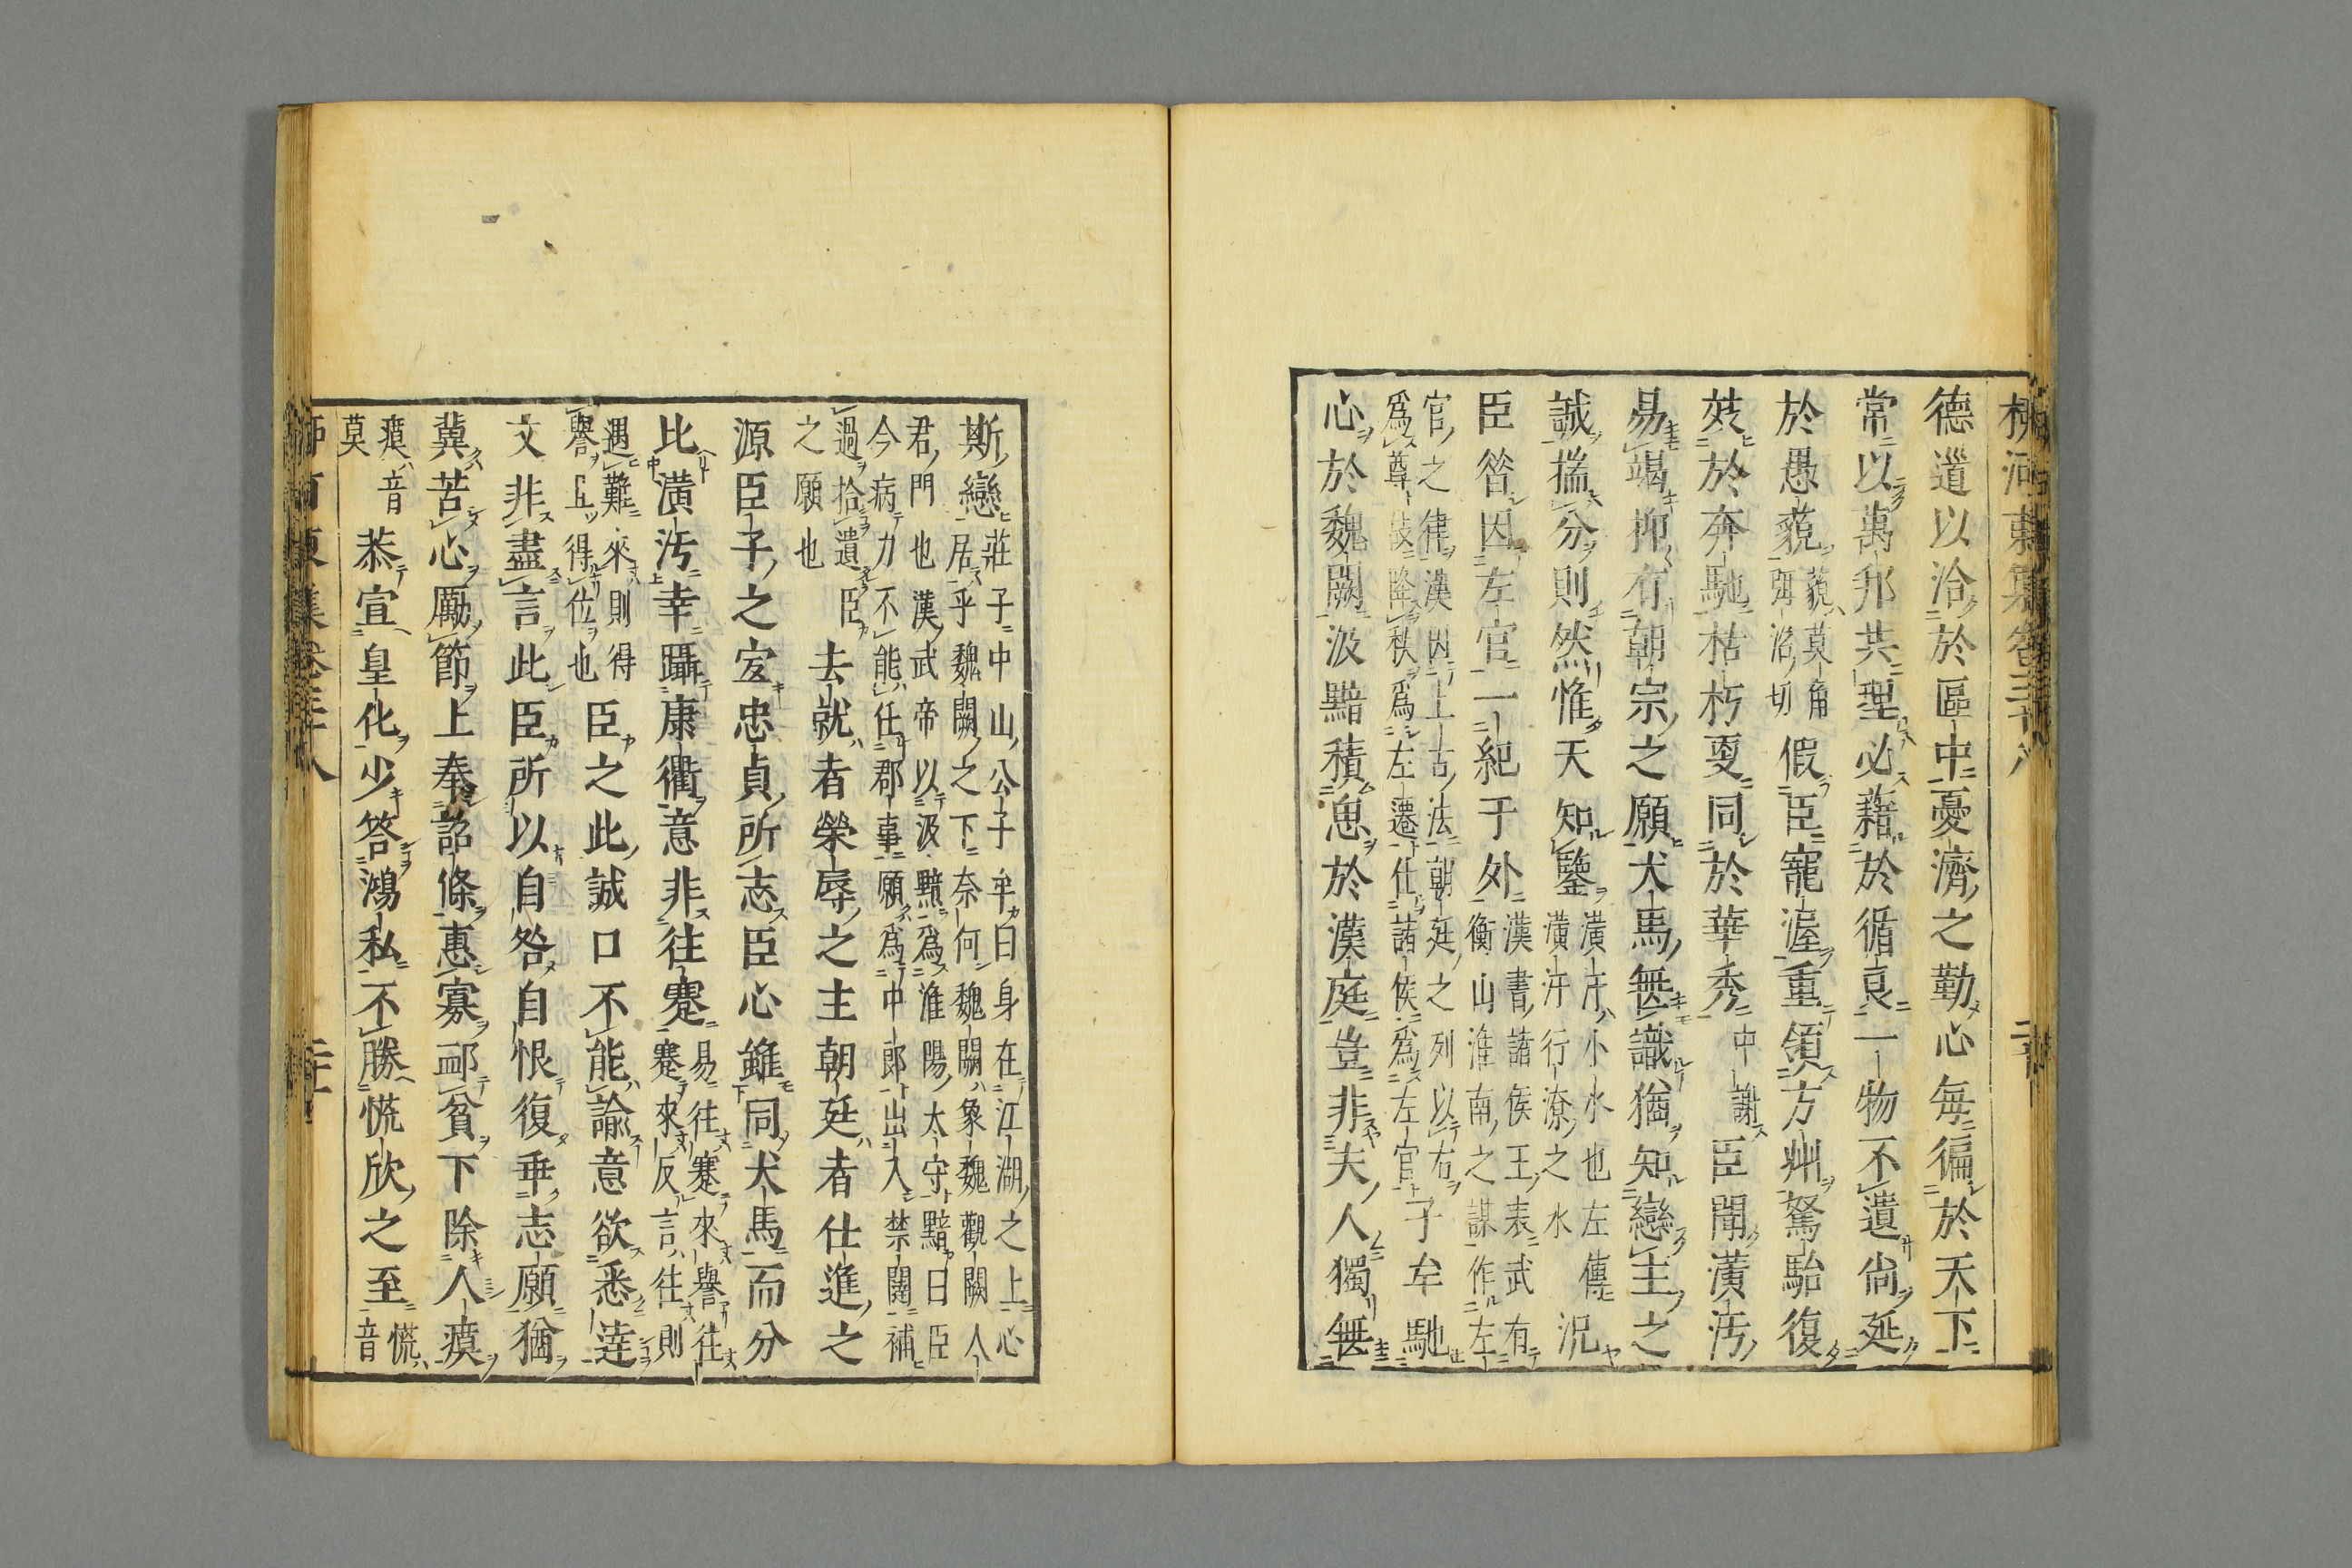 德道以洽於區中憂濟之勤心每徧於天下
常以萬邦共理必藉於循良一物不遺尚延
於愚藐藐莫角弭沼切假臣寵渥重領方州駑駘復
效於奔馳枯朽更同於華秀中謝臣聞潢汚
易竭抑有朝宗之願犬馬無識猶知戀主之
誠揣分則然惟天知鑒潢汙小水也左傳潢汙行潦之水況
臣咎因左官一紀于外漢書諸侯王表武有衡山淮南之謀作左
官之律漢因上古法朝廷之列以右爲尊故降秩爲左遷仕諸侯爲左官子牟馳
心於魏闕汲黯積思於漢庭豈非夫人獨無
斯戀莊子中山公子牟曰身在江湖之上心居乎魏闕之下奈何魏闕象魏觀闕人
君門也漢武帝以汲黯爲淮陽太守黯曰臣今病力不能任郡事願爲中郎出入禁闥補
過拾遺臣之願也去就者榮辱之主朝廷者仕進之
源臣子之宜忠貞所志臣心雖同犬馬而分
比潢汚幸躡康衢意非往蹇易往蹇來譽往蹇來反言往則
遇難來則得譽且得位也臣之此誠口不能諭意欲悉達
文非盡言此臣所以自咎自恨復垂志願猶
冀苦心勵節上奉詔條惠寡䘏貧下除人瘼
瘼音莫恭宣皇化少答鴻私不勝慌欣之至慌音